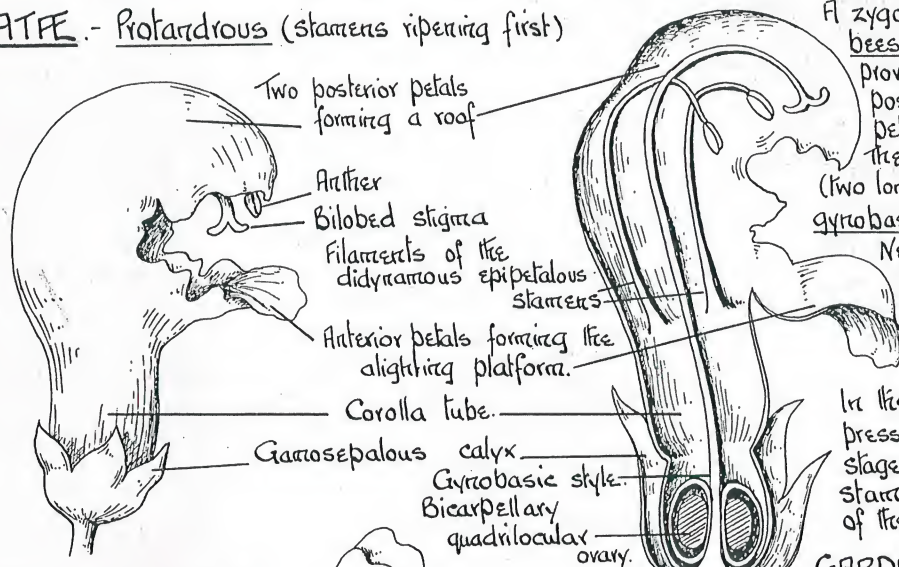 Protandrous (stamens ripening first)
Two posterior petals
forming a roof
Anther
Bilobed stigma
Filaments of the
didynamous epipetalous
stamens
Anterior petals forming the
alighting platform.
Corolla tube.
Gamosepalous calyx
Gynobasic style.
Bicarpellary
quadrilocular
ovary.
A zygo
bees
prov
pos
pe
The
(two lon
gynobas
Ne
In the
press
stage
stam
of the